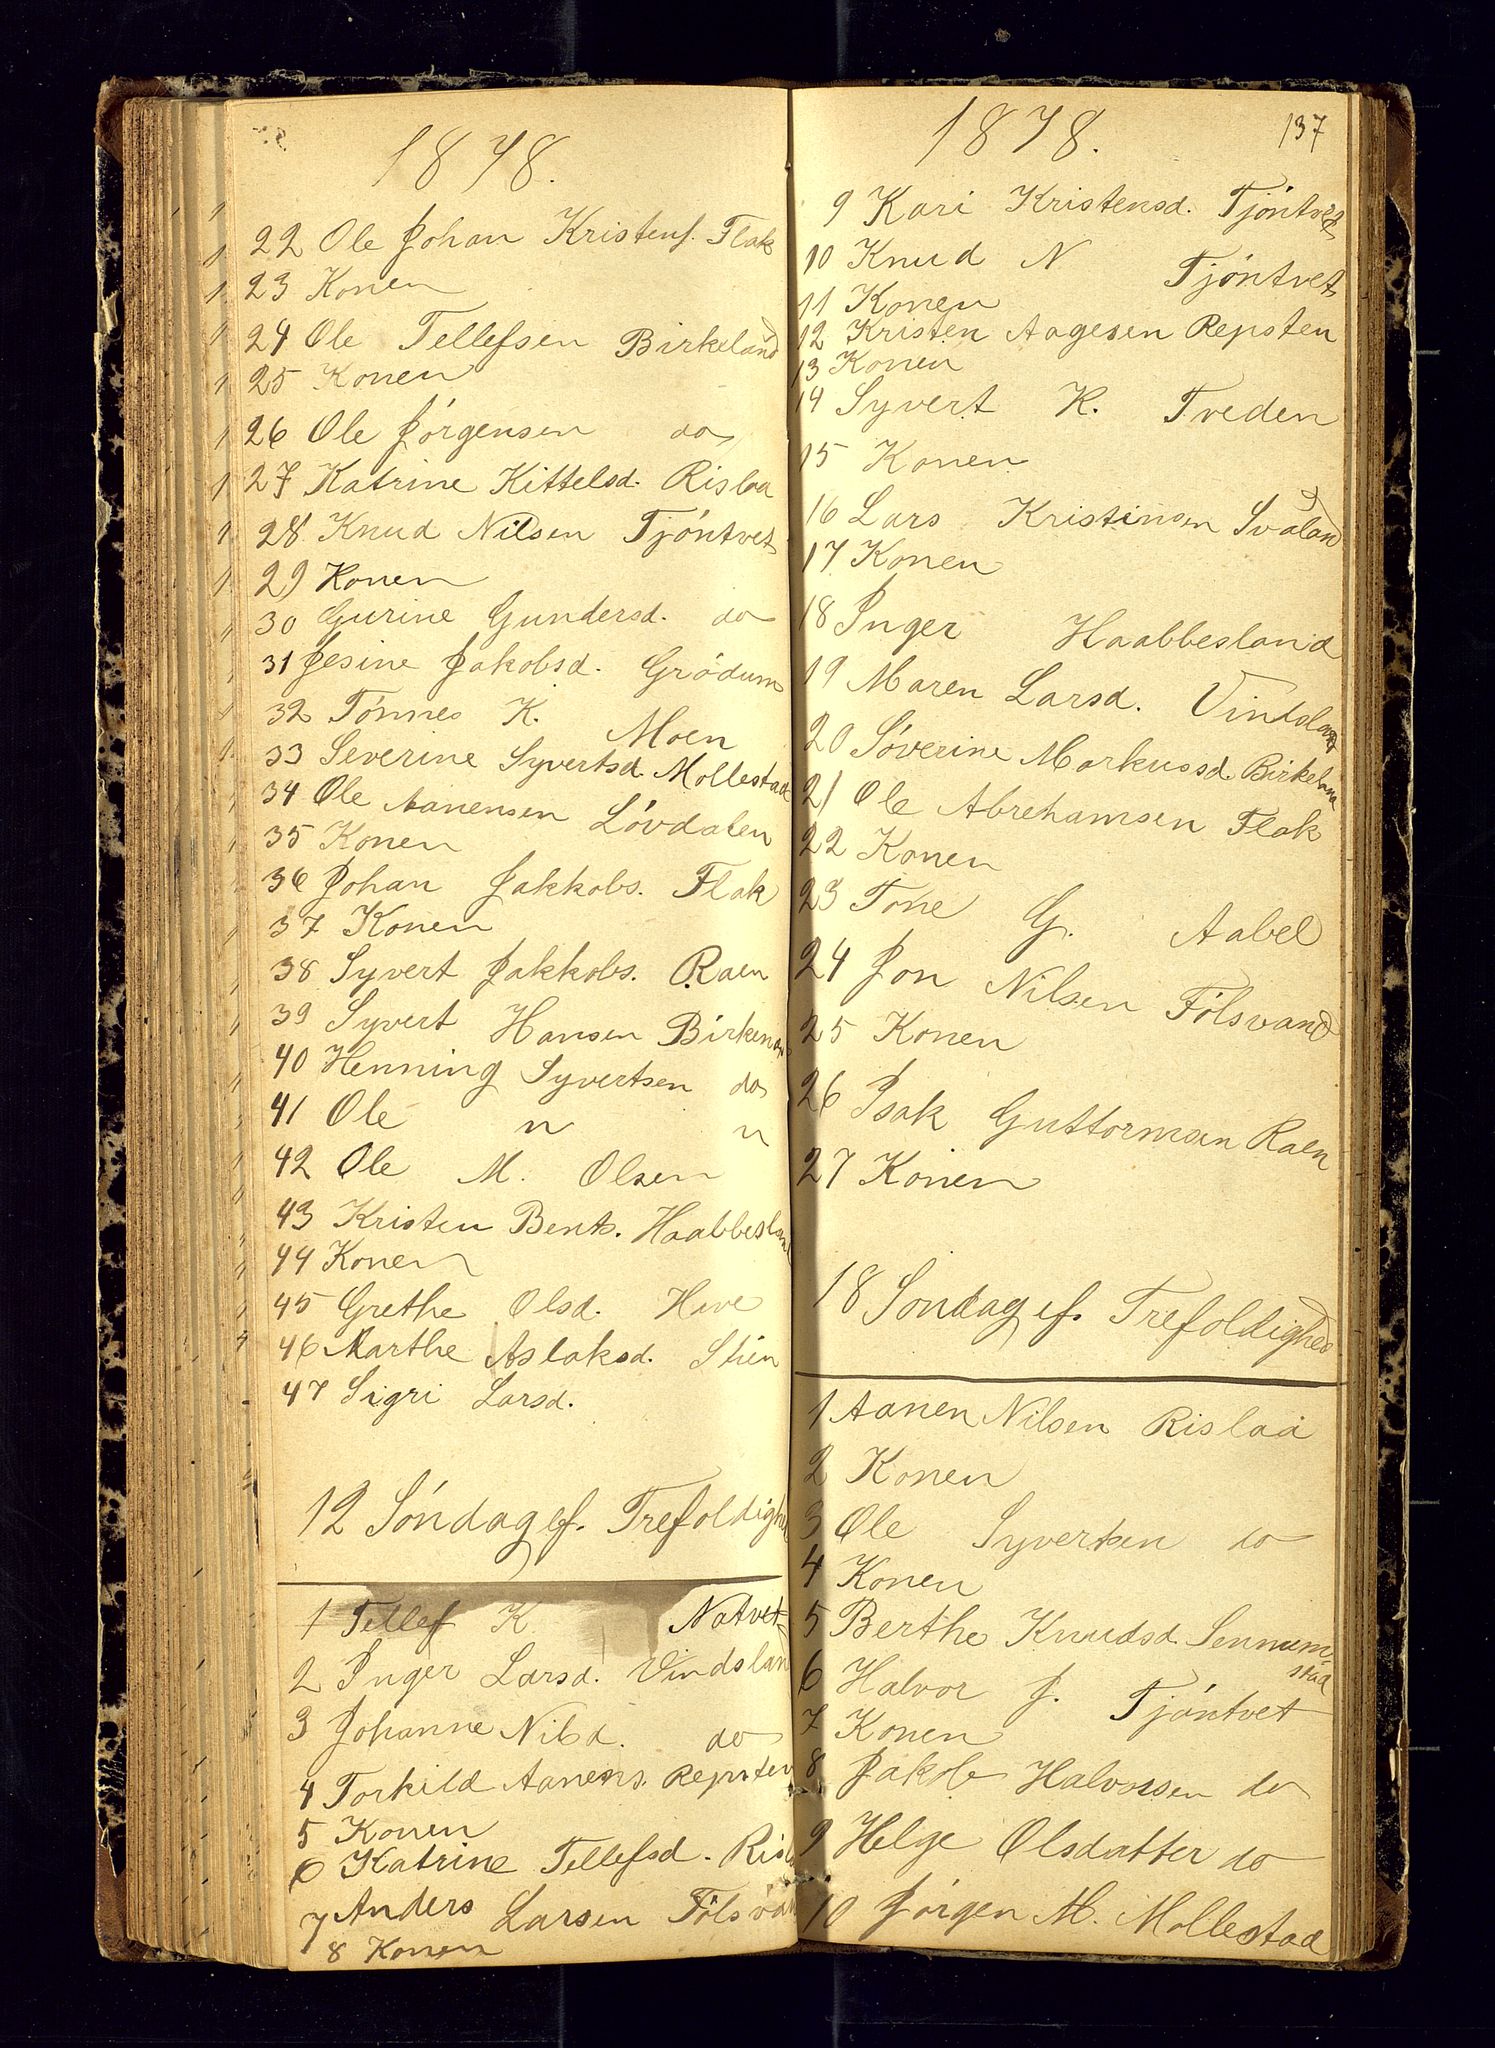 1878.
22 Ole Johan Kristens. Flak
23 Konen
24 Ole Tellefsen Birkeland
25 Konen
26 Ole Jørgensen do
27 Katrine Kittelsd. Rislaa
28 Knud Nilsen Tjöntvet
29 Konen
30 Gurine Gundersd. do
31 Jesine Jakobsd. Grödum
32 Tönnes K. Moen
33 Severine Syvertsd. Mollestad
34 Ole Aanensen Lövdalen
35 Konen
36 Johan Jakkobs. Flak
37 Konen
38 Syvert Jakkobs. Raen
39 Syvert Hansen Birkenes
40 Henning Syvertsen do
41 Ole " "
42 Ole M. Olsen
43 Kristen Bents. Haabbesland
44 Konen
45 Grethe Olsd. Hive
46 Marthe Aslaksd. Stien
47 Sigri Larsd.
12 Söndag ef. Trefoldighed
1 Tellef K Natvet
2 Inger Larsd. Vindsland
3 Johanne Nilsd. do
4 Torkild Aanens. Repsten
5 Konen
6 Katrine Tellefsd. Risl
7 Anders Larsen Fölsvan
8 Konen
1878. 137
9 Kari Kristensd. Tjöntvet
10 Knud N Tjöntvet
11 Konen
12 Kristen Aagesen Repsten
13 Konen
14 Syvert K. Tveden
15 Konen
16 Lars Kristensen Svaland
17 Konen
18 Inger Haabbesland
19 Maren Larsd. Vindsland
20 Söverine Markussd. Birkeland
21 Ole Abrehamsen Flak
22 Konen
23 Tone G. Aabel
24 Jon Nilsen Fölsvand
25 Konen
26 Isak Guttormsen Raen
27 Konen
18 Söndag ef. Trefoldighed
1 Aanen Nilsen Rislaa
2 Konen
3 Ole Syvertsen do
4 Konen
5 Berthe Knudsd. Sennum-
stad
6 Halvor J. Tjöntvet
7 Konen
8 Jakob Halvorsen do
9 Helge Olsdatter do
10 Jörgen M. Mollestad